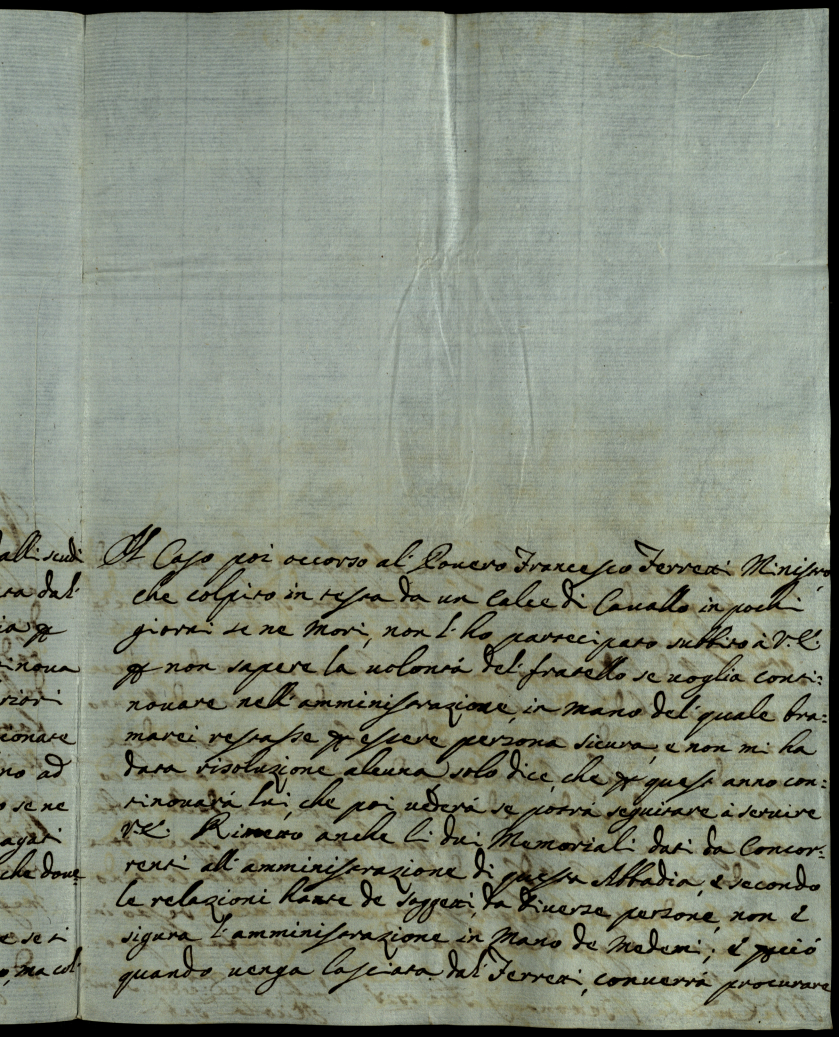 alli scudi
ta dal'
ia p
tinova
riori
ionate
no ad
o se ne
agati
che dove=
e se ti
o, ma col'
Il Caso poi occorso al' Povero Francesco Ferretti Ministro,
che colpito in testa da un Calce di Cavallo in pochi
giorni se ne morì, non l'ho partecipato subbito à V.E.
p non sapere la volontà del' fratello se voglia conti=
novare nell'amministrazione, in mano del' quale bra=
marei restasse p essere persona sicura, e non mi ha
data risoluzione alcuna solo dice, che p quest'anno con=
tinovarà lui, che poi vederà se potrà seguitare à servire
V.E. Rimetto anche li dui Memoriali dati da Concor=
renti all'amministrazione di questa Abbadia, e secondo
le relazioni haute de soggetti, da diverse persone, non è
sigura l'amministrazione in mano de Medemi; è pciò
quando venga lasciata dal' Ferretti, converrà procurare